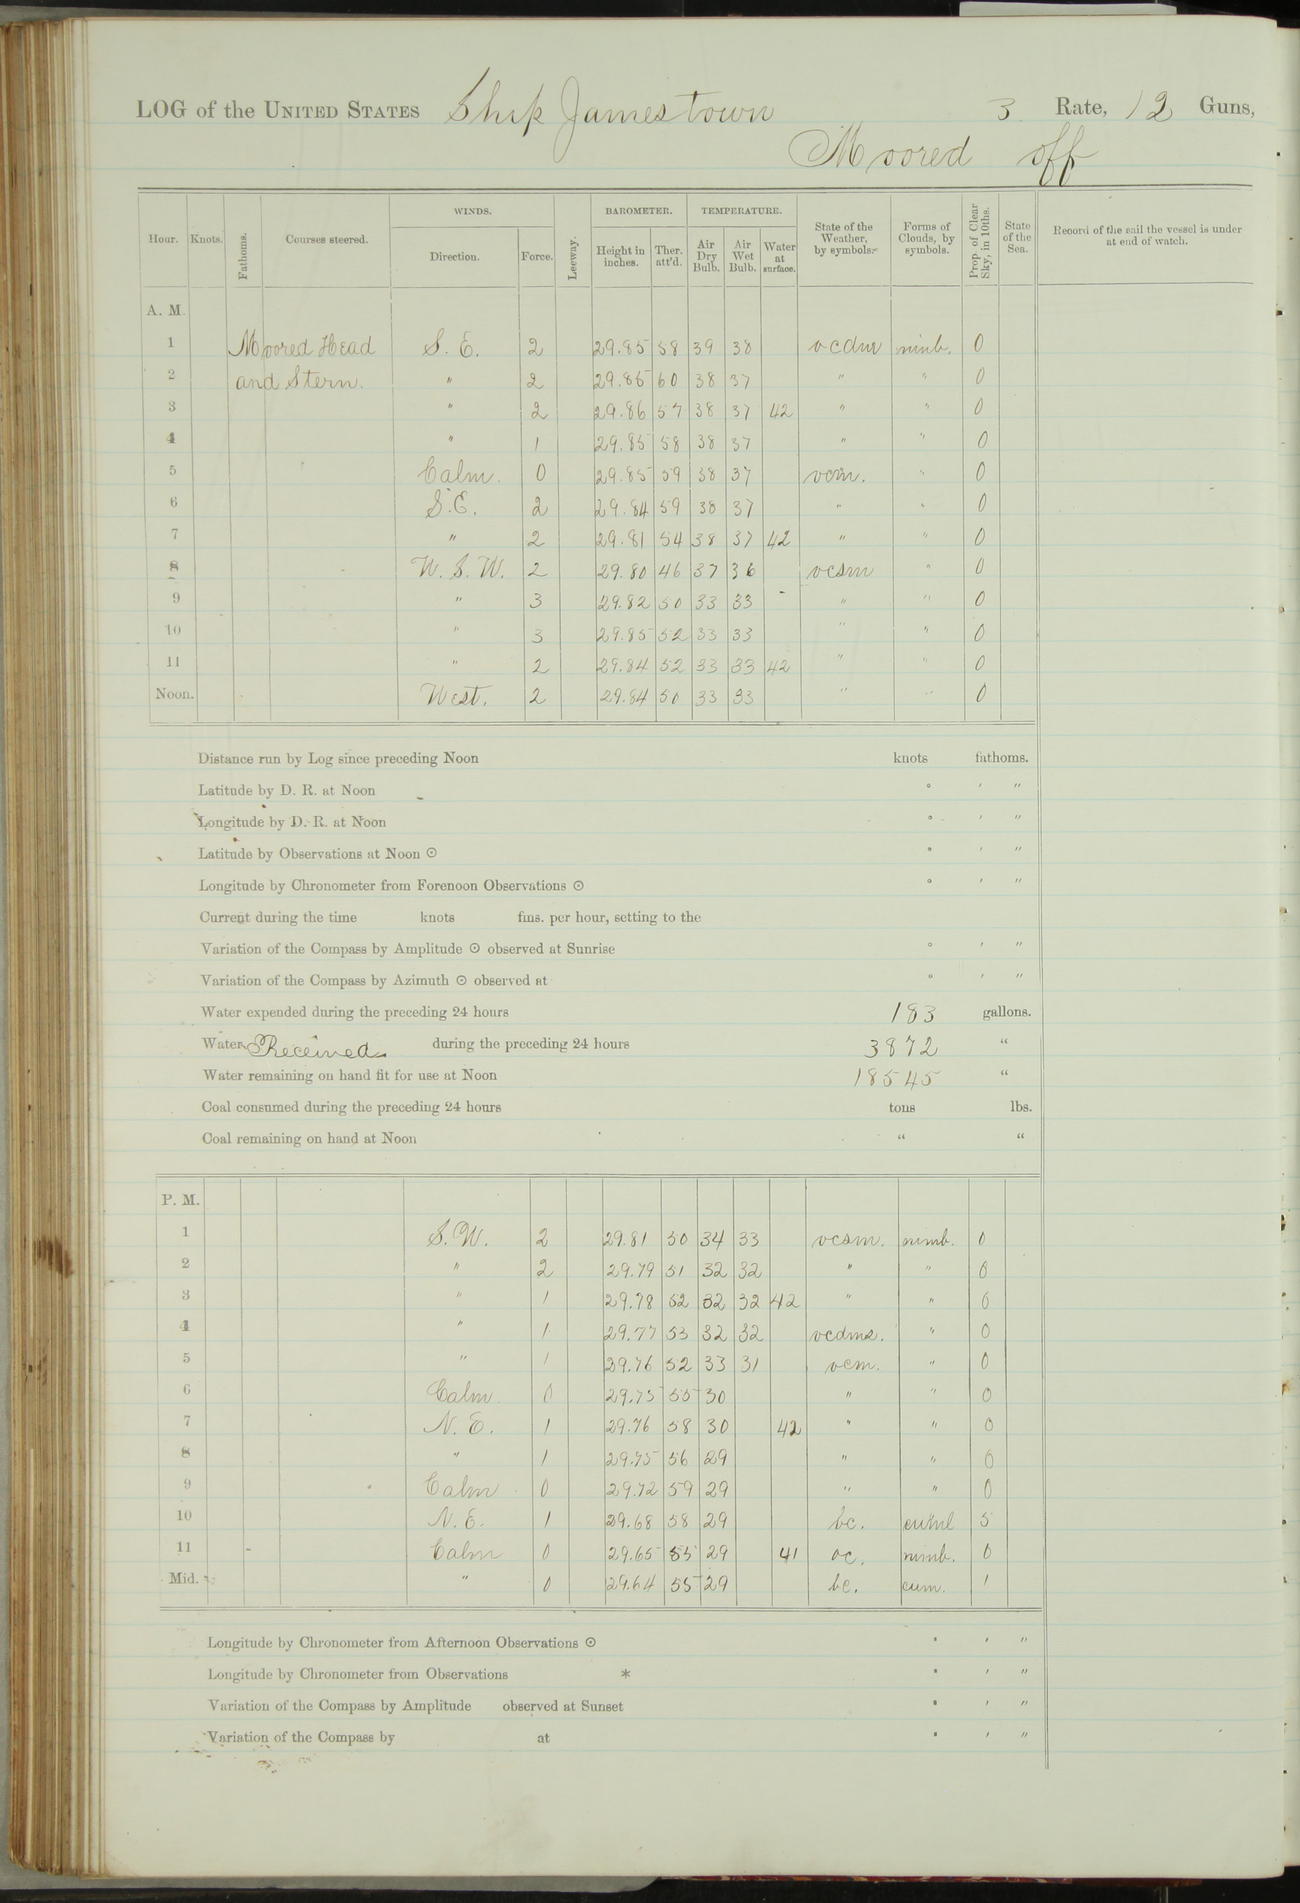 LOG of the UNITED STATES Ship Jamestown 3 Rate, 12 Guns,
Moored off
Hour. Knots. Fathoms. Courses steered. WINDS. Direction. Force. Leeway. BAROMETER. Height in inches. Ther. att'd. TEMPERATURE. Air Dry Bulb. Air Wet Bulb. Water at surface. State of the Weather, by symbols. Forms of Clouds, by symbols. Prop. of Clear Sky, in 10ths. State of the Sea. Record of the sail the vessel is under at end of watch.
A. M.
1 Moored Head S. E. 2 29.85 58 39 38 ocdm nimb. 0
2 and Stern. " 2 29.85 60 38 37 " " 0
3 " 2 29.86 57 38 37 42 " " 0
4 " 1 29.85 58 38 37 " " 0
5 Calm. 0 29.85 59 38 37 ocm. " 0
6 S.E. 2 29.84 59 38 37 " " 0
7 " 2 29.81 54 38 37 42 " " 0
8 W. S. W. 2 29.80 46 37 36 ocsm " 0
9 " 3 29.82 50 33 33 " " 0
10 " 3 29.85 52 33 33 " " 0
11 " 2 29.84 52 33 33 42 " " 0
Noon. West. 2 29.84 50 33 33 " " 0
Distance run by Log since preceding Noon knots fathoms.
Latitude by D. R. at Noon ° ′ ″
Longitude by D. R. at Noon ° ′ ″
Latitude by Observations at Noon ⊙ ° ′ ″
Longitude by Chronometer from Forenoon Observations ⊙ ° ′ ″
Current during the time knots fms. per hour, setting to the
Variation of the Compass by Amplitude ⊙ observed at Sunrise ° ′ ″
Variation of the Compass by Azimuth ⊙ observed at ° ′ ″
Water expended during the preceding 24 hours 183 gallons.
Water Received during the preceding 24 hours 3872 "
Water remaining on hand fit for use at Noon 18545 "
Coal consumed during the preceding 24 hours tons lbs.
Coal remaining on hand at Noon " "
P. M.
1 S. W. 2 29.81 50 34 33 ocsm. nimb. 0
2 " 2 29.79 51 32 32 " " 0
3 " 1 29.78 52 32 32 42 " " 0
4 " 1 29.77 53 32 32 ocdms. " 0
5 " 1 29.76 52 33 31 ocm. " 0
6 Calm 0 29.75 55 30 " " 0
7 N. E. 1 29.76 58 30 42 " " 0
8 " 1 29.75 56 29 " " 0
9 Calm 0 29.72 59 29 " " 0
10 N. E. 1 29.68 58 29 bc. 5
11 Calm 0 29.65 55 29 41 oc. nimb. 0
Mid. " 0 29.64 55 29 bc. cum. 1
Longitude by Chronometer from Afternoon Observations ⊙ ° ′ ″
Longitude by Chronometer from Observations * ° ′ ″
Variation of the Compass by Amplitude observed at Sunset ° ′ ″
Variation of the Compass by at ° ′ ″